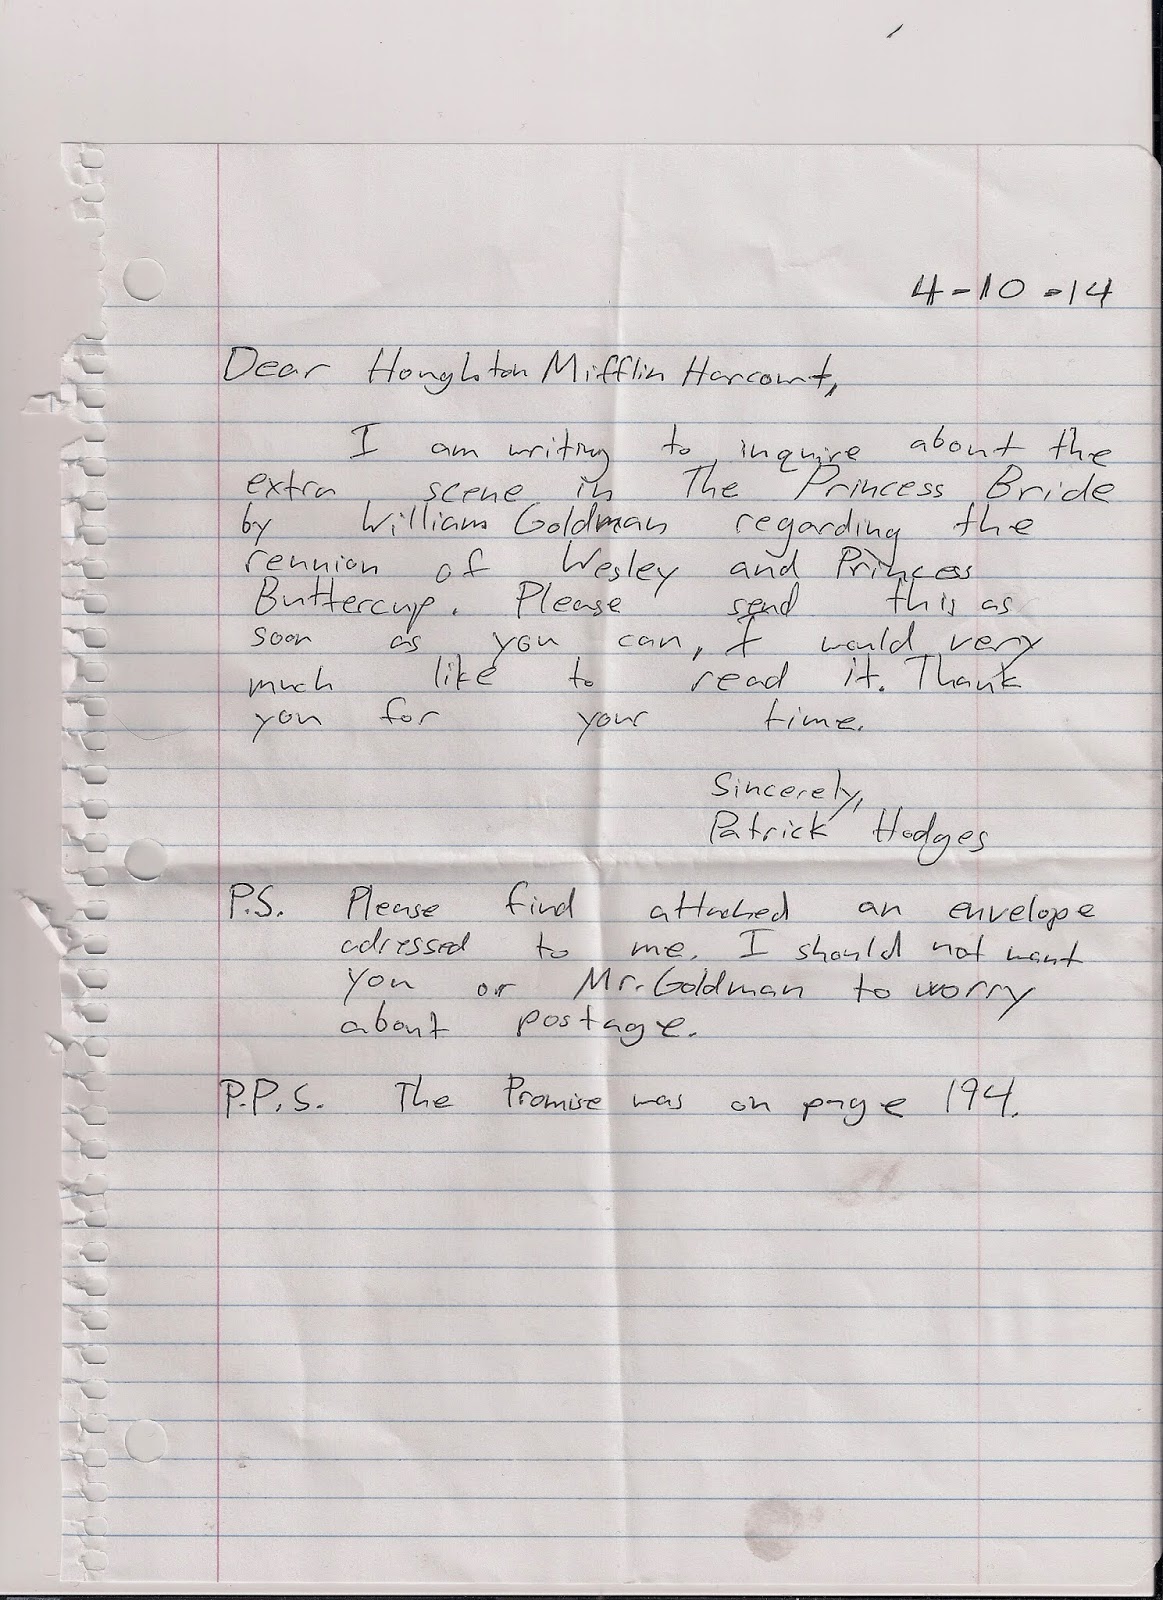 4-10-14
Dear Houghton Mifflin Harcourt,
I am writing to inquire about the
extra scene in The Princess Bride
by William Goldman regarding the
reunion of Wesley and Princess
Buttercup. Please send this as
soon as you can, I would very
much like to read it. Thank
you for your time.
Sincerely,
Patrick Hodges
P.S. Please find attached an envelope
adressed to me. I should not want
you or Mr. Goldman to worry
about postage.
P.P.S. The Promise was on page 194.